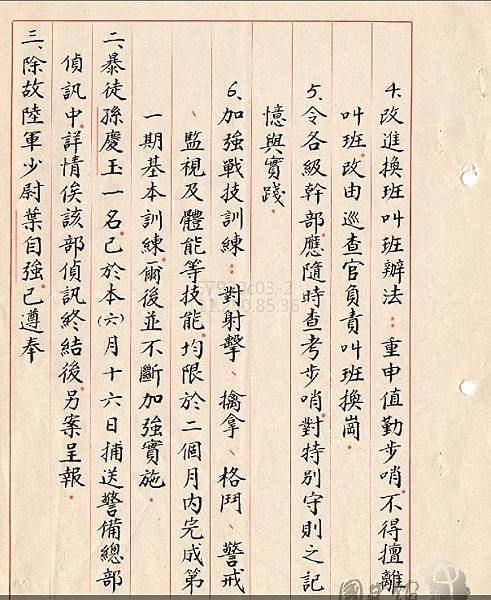 4.改進換班叫班辦法：重申值勤步哨不得擅離
叫班，改由巡查官負責叫班換崗。
5.令各級幹部應隨時查考步哨對特別守則之記
憶與實踐。
6.加強戰技訓練：對射擊、擒拿、格鬥、警戒
、監視及體能等技能，均限於二個月內完成第
一期基本訓練，爾後並不斷加強實施。
二、暴徒孫慶玉一名，已於本(六)月十六日捕送警備總部
偵訊中，詳情俟該部偵訊終結後，另案呈報。
三、除故陸軍少尉葉自強已遵奉